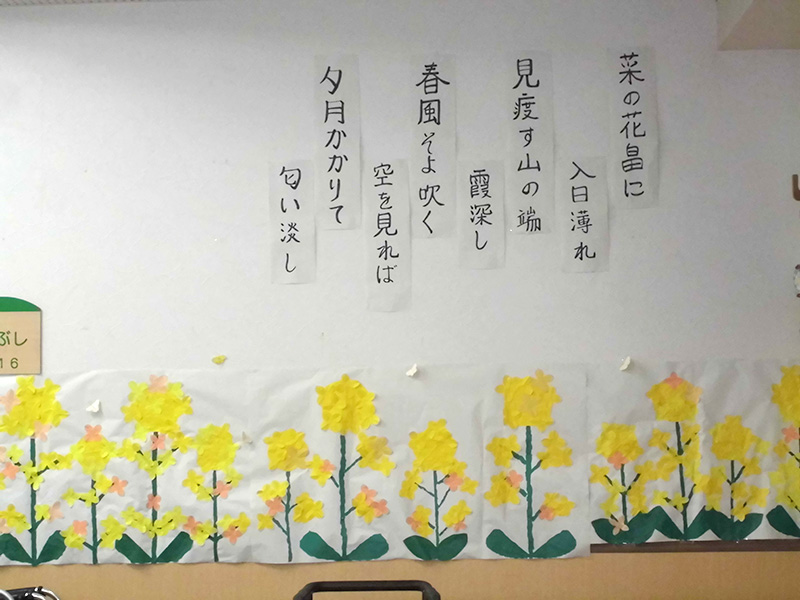 菜の花畠に
入日薄れ
見渡す山の端
霞深し
春風そよ吹く
空を見れば
夕月かかりて
匂い淡し
ぶし
16